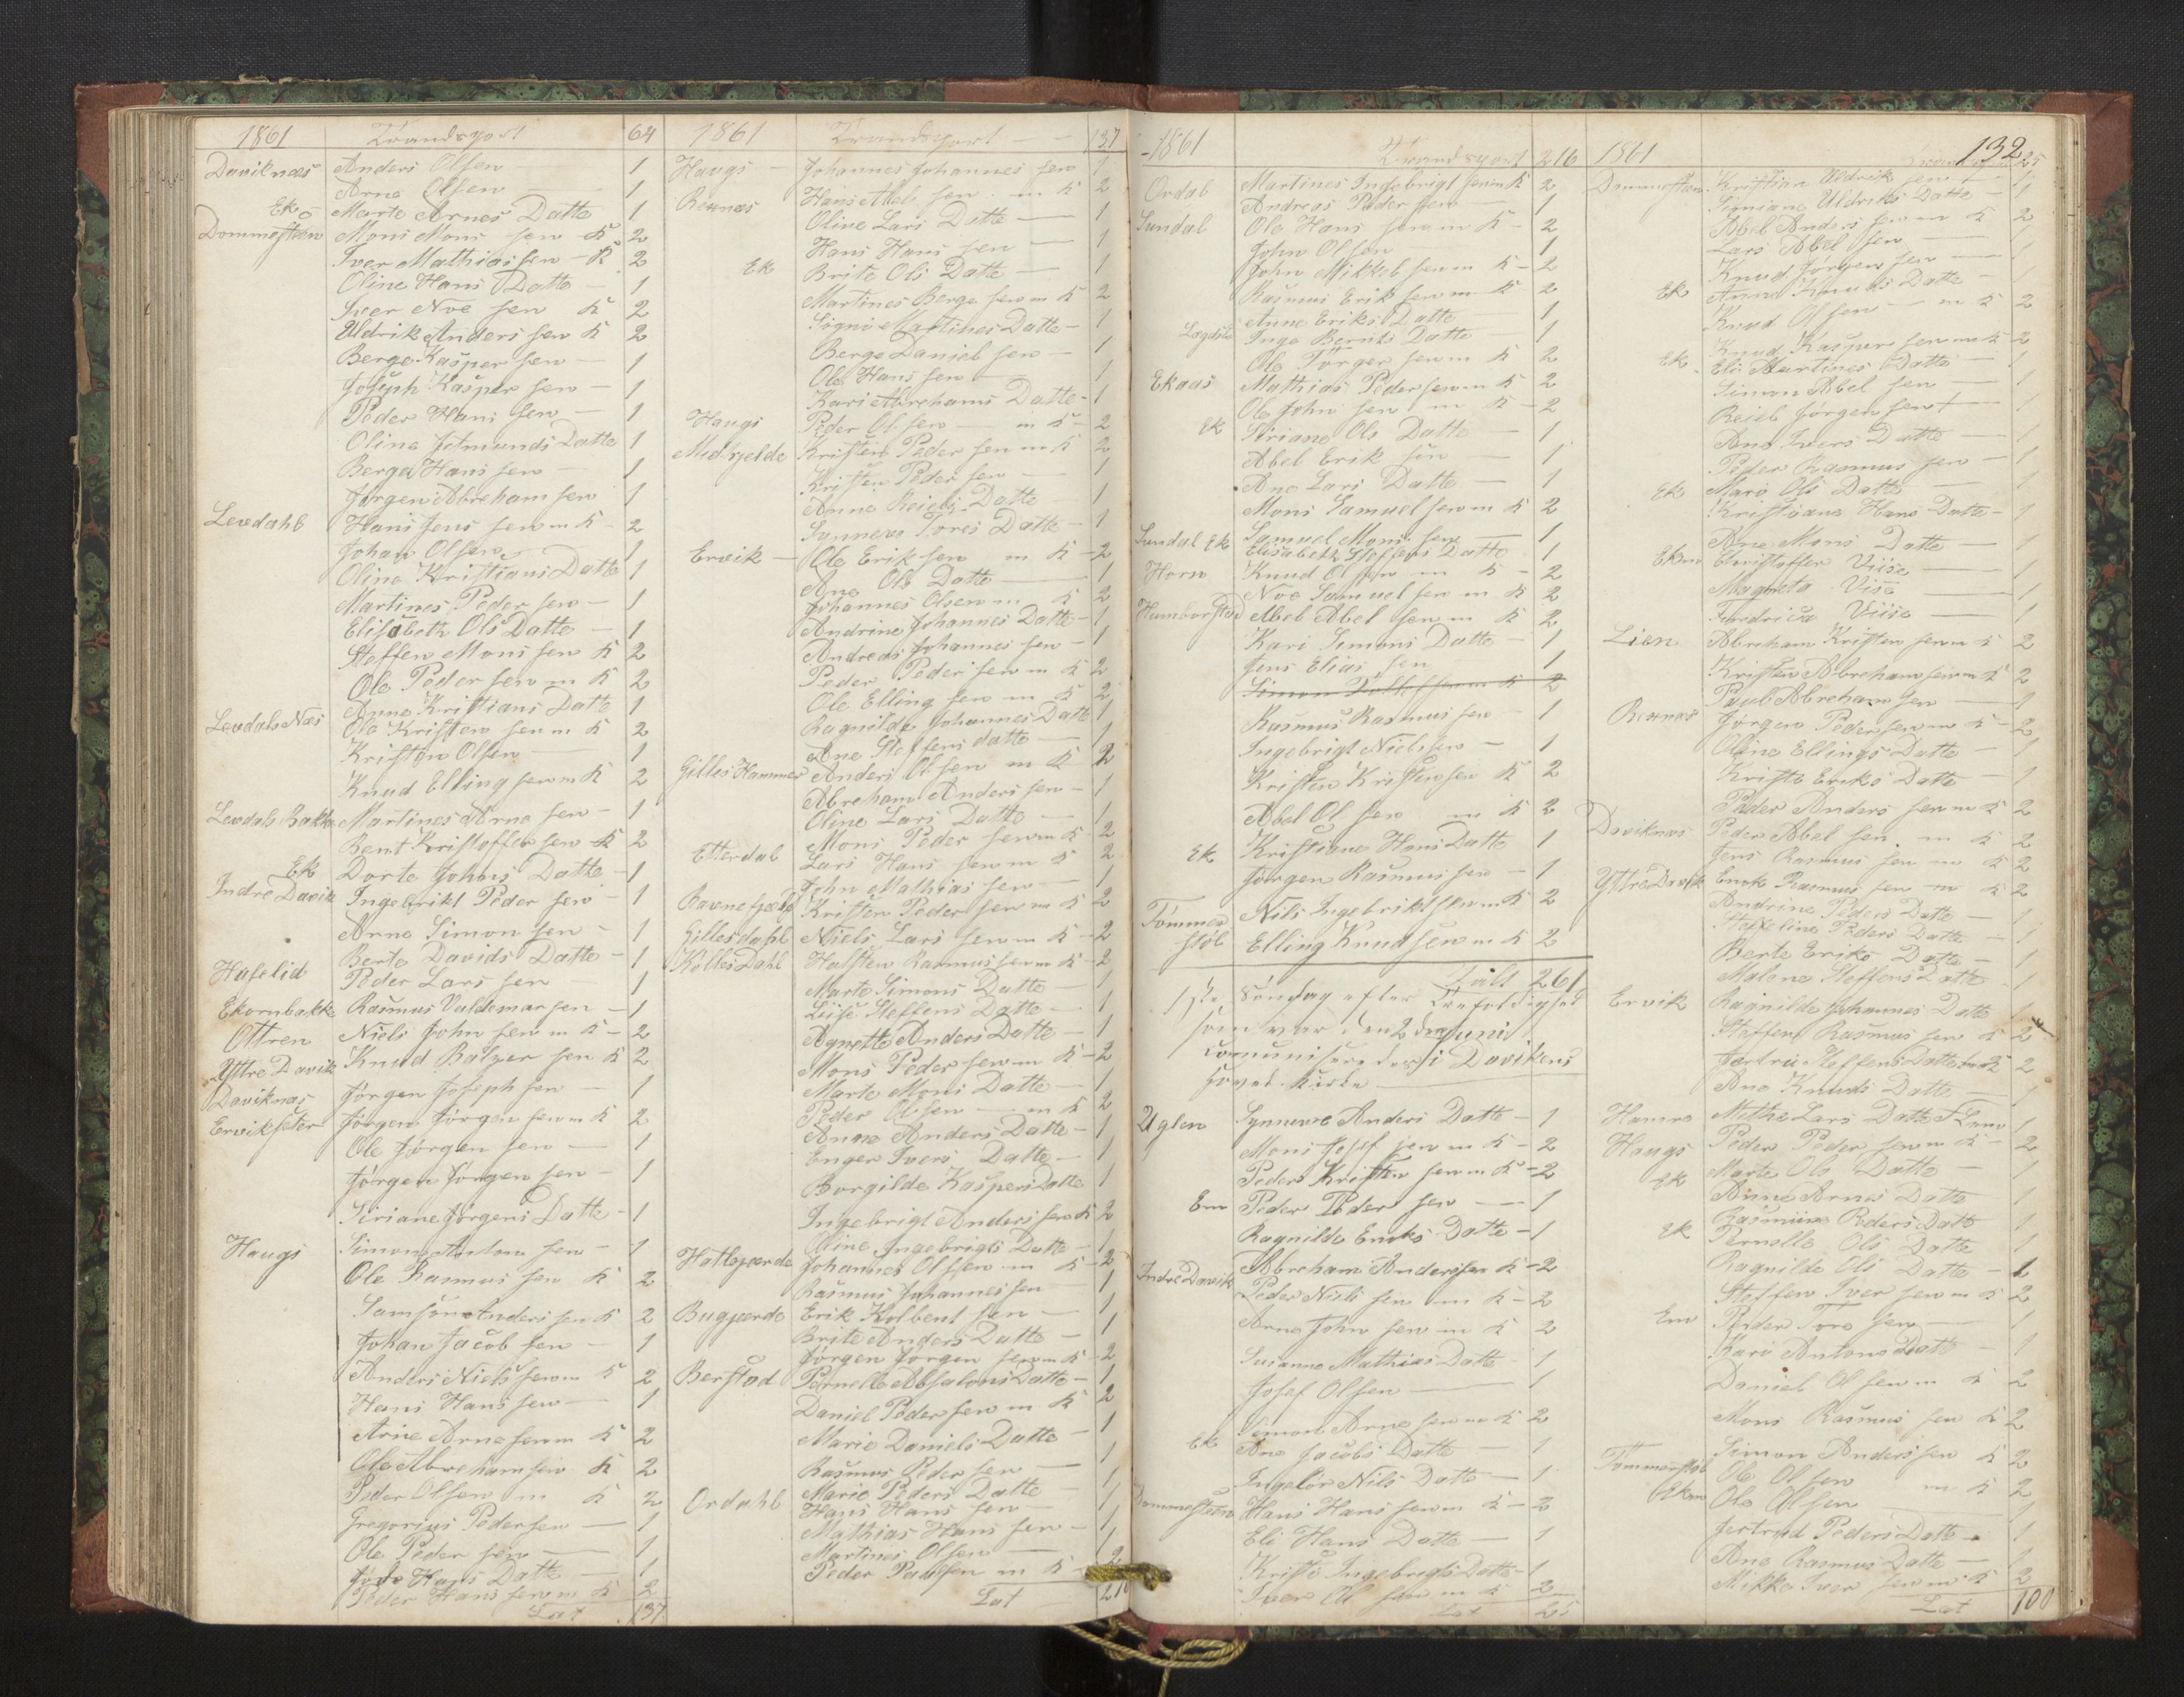 1861 Trandsport 64
Daviknæs Anders Olsen 1
Arne Olsen 1
Ek Marte Arnes Datte 1
Dommesteen Mons Mons sen K 2
Iver Mathias sen K 2
Oline Hans Datte 1
Iver Noe sen K 2
Uldrik Anders sen K 2
Berge Kasper sen 1
Joseph Kasper sen 1
Peder Hans sen 1
Oline Jetmunds Datte 1
Berge Hans sen 1
Jørgen Abreham sen 1
Levdahl Hans Jens sen m K 2
Johan Olsen 1
Oline Kristians Datte 1
Martines Peder sen 1
Elisabeth Ols Datte 1
Steffen Mons sen K 2
Ole Peder sen m K 2
Anne Kristians Datte 1
Levdals Næs Ole Kristen sen m K 2
Kristen Olsen 1
Knud Elling sen m K 2
Levdals Bakke Martines Arne sen 1
Bent Kristoffer sen K 2
Ek Dorte Johns Datte 1
Indre Davik Ingebrikt Peder sen 1
Arne Simon sen 1
Berte Davids Datte 1
Hafslid Peder Lars sen 1
Ekornbakke Rasmus Valdemar sen 1
Ottren Niels John sen m K 2
Yttre Davik Knud Balzer sen K 2
Daviknæs Jørgen Joseph sen 1
Ervikseter Jørgen Jørgen sen m K 2
Ole Jørgen sen 1
Jørgen Jørgen sen 1
Siriane Jørgens Datte 1
Haugs Simon Anton sen 1
Ole Rasmus sen K 2
Samson Anders sen K 2
Johan Jacob sen 1
Anders Niels sen m K 2
Hans Hans sen 1
Arne Arne sen m K 2
Ole Abreham sen K 2
Peder Olsen m K 2
Gregorius Peder sen 1
Ole Peder sen 1
Hans Datte 1
Peder Hans sen m K 2
Lat 137
1861 Trandsport 137
Haugs Johannes Johannes sen 1
Rexnæs Hans Abels sen m K 2
Oline Lars Datte 1
Hans Hans sen 1
Ek Brite Ols Datte 1
Martines Berge sen m K 2
Signe Martines Datte 1
Berge Daniel sen 1
Ole Hans sen 1
Kari Abrehams Datte 1
Haugs Peder Ol sen m K 2
Midhjelde Kristen Peder sen m K 2
Kristen Peder sen 1
Anne Reiels Datte 1
Sunneva Tores Datte 1
Ervik Ole Erik sen m K 2
Ane Ols Datte 1
Johannes Olsen m K 2
Andrine Johannes Datte 1
Andreas Johannes sen 1
Peder Peder sen m K 2
Ole Elling sen m K 2
Ragnilde Johannes Datte 1
Ane Steffens datte 1
Gilles Hammer Anders Ol sen m K 2
Abreham Anders sen 1
Oline Lars Datte 1
Mons Peder sen m K 2
Etterdal Lars Hans sen m K 2
John Mathias sen 1
Ravnefjeld Kristen Peder sen m K 2
Gillesdahl Niels Lars sen m K 2
Kolles Dahl Halsten Rasmus sen m K 2
Marte Simons Datte 1
Lise Steffens Datte 1
Agnette Anders Datte 1
Mons Peder sen m K 2
Marte Mons Datte 1
Peder Ol sen m K 2
Anne Anders Datte 1
Enger Ivers Datte 1
Borgilde Kaspers Datte 1
Ingebrigt Anders sen K 2
Oline Ingebrigts Datte 1
Hatlegjærde Johannes Ol sen m K 2
Rasmus Johannes sen 1
Bugjærde Erik Kolbent sen 1
Brite Anders Datte 1
Jørgen Jorgen sen m K 2
Berstad Pernelle Absalons Datte 1
Daniel Peder sen m K 2
Marie Daniels Datte 1
Rasmus Peder sen 1
Marie Peders Datte 1
Ordahl Hans Hans sen 1
Mathias Hans sen 1
Martines Olsen 1
Peder Paulsen m K 2
Lat
1861 Trandsport 216
Ordal Martines Ingebrigt sen m K 2
Andreas Peder sen 1
Sundal Ole Hans sen m K 2
John Olsen 1
John Mikkel sen m K 2
Rasmus Erik sen m K 2
Anne Eriks Datte 1
Inge Bernts Datte 1
Ole Jörger sen m K 2
Ekaas Mathias Peder sen m K 2
Ole John sen m K 2
Ek Siriane Ols Datte 1
Abel Erik sen 1
Ane Lars Datte 1
Mons Samuel sen m K 2
Samuel Mons sen 1
Sundal Ek Elisabeth Stoffers Datte 1
Horn Knud Olsen m K 2
Noe Samuel sen m K 2
Humborstad Abel Abel sen m K 2
Kari Simons Datte 1
Jens Elias sen 1
Rasmus Rasmus sen 1
Ingebrigt Niels sen 1
Kristen Kristen sen K 2
Abel Ol sen m K 2
Ek Kristiane Hans Datte 1
Jørgen Rasmus sen 1
Tömmer Nils Ingebrikt sen m K 2
støl Elling Knud sen m K 2
Talt 261
1ste Søndag efter Trefoldighed
som var den 2den Juni
comunisere des i Davikens
hoved Kirke
Uglen Synneve Anders Datte 1
Mons Josef sen m K 2
Peder Kristen sen m K 2
Em Peder Peder sen 1
Ragnilde Eriks Datte 1
Abreham Anders sen K 2
Indre Davik Peder Niels sen m K 2
Arne John sen m K 2
Susanne Mathias Datte 1
Josef Olsen 1
Simon Arne sen m K 2
Ek Ane Jacobs Datte 1
Ingelör Nils Datte 1
Dommesteen Hans Hans sen m K 2
Eli Hans Datte 1
Kriste Ingebregts Datte 1
Iver Ol sen m K 2
Lat 25
132
1861 25
Dommesteen Kristian Uldrik sen 1
Simiane Uldriks Datte 1
Abel Anders sen m K 2
Lars Abel sen 1
Knud Jörgen sen 1
Ek Anne Knuds Datte 1
Knud Ol sen m K 2
Knud Kasper sen m K 2
Ek Eli Martines Datte 1
Simon Abel sen 1
Reiel Jorgen sen 1
Ane Ivers Datte 1
Peder Rasmus sen 1
Ek Mari Ols Datte 1
Kristiane Hans Datte 1
Ane Mons Datte 1
Ekm Christoffer Viise 1
Magreta Vise 1
Fredrica Viise 1
Lien Abreham Kristen sen m K 2
Kristen Abreham sen m K 2
Paul Abreham sen 1
Rexnæs Jørgen Peder sen m K 2
Oline Ellings Datte 1
Kriste Eriks Datte 1
Peder Anders sen m K 2
Daviknæs Peder Abel sen m K 2
Jens Rasmus sen m K 2
Yttre Davik Erik Rasmus sen m K 2
Andrine Peders Datte 1
Steffeline Peders Datte 1
Berte Eriks Datte 1
Malene Steffens Datte 1
Ervik Ragnilde Johannes Datte 1
Steffen Rasmus sen K 2
Jertru Steffens Datte m K 2
Ane Knuds Datte 1
Hamre Mithe Lars Datte 1
Haugs Peder Peder sen m K 2
Marte Ols Datte 1
Ek Anne Arnes Datte 1
Rasmine Peders Datte 1
Ek Pernelle Ols Datte 1
Ragnilde Ols Datte 1
Steffen Iver sen m K 2
Em Peder Tore sen 1
Kari Antons Datte 1
Daniel Ol sen m K 2
Mons Rasmus sen K 2
Simon Anders sen K 2
Tømmerstøl Ole Ol sen m K 2
Ekm Ole Olsen 1
Jertrud Peders Datte 1
Ane Rasmus Datte 1
Mikkel Iver sen m K 2
Lat 100